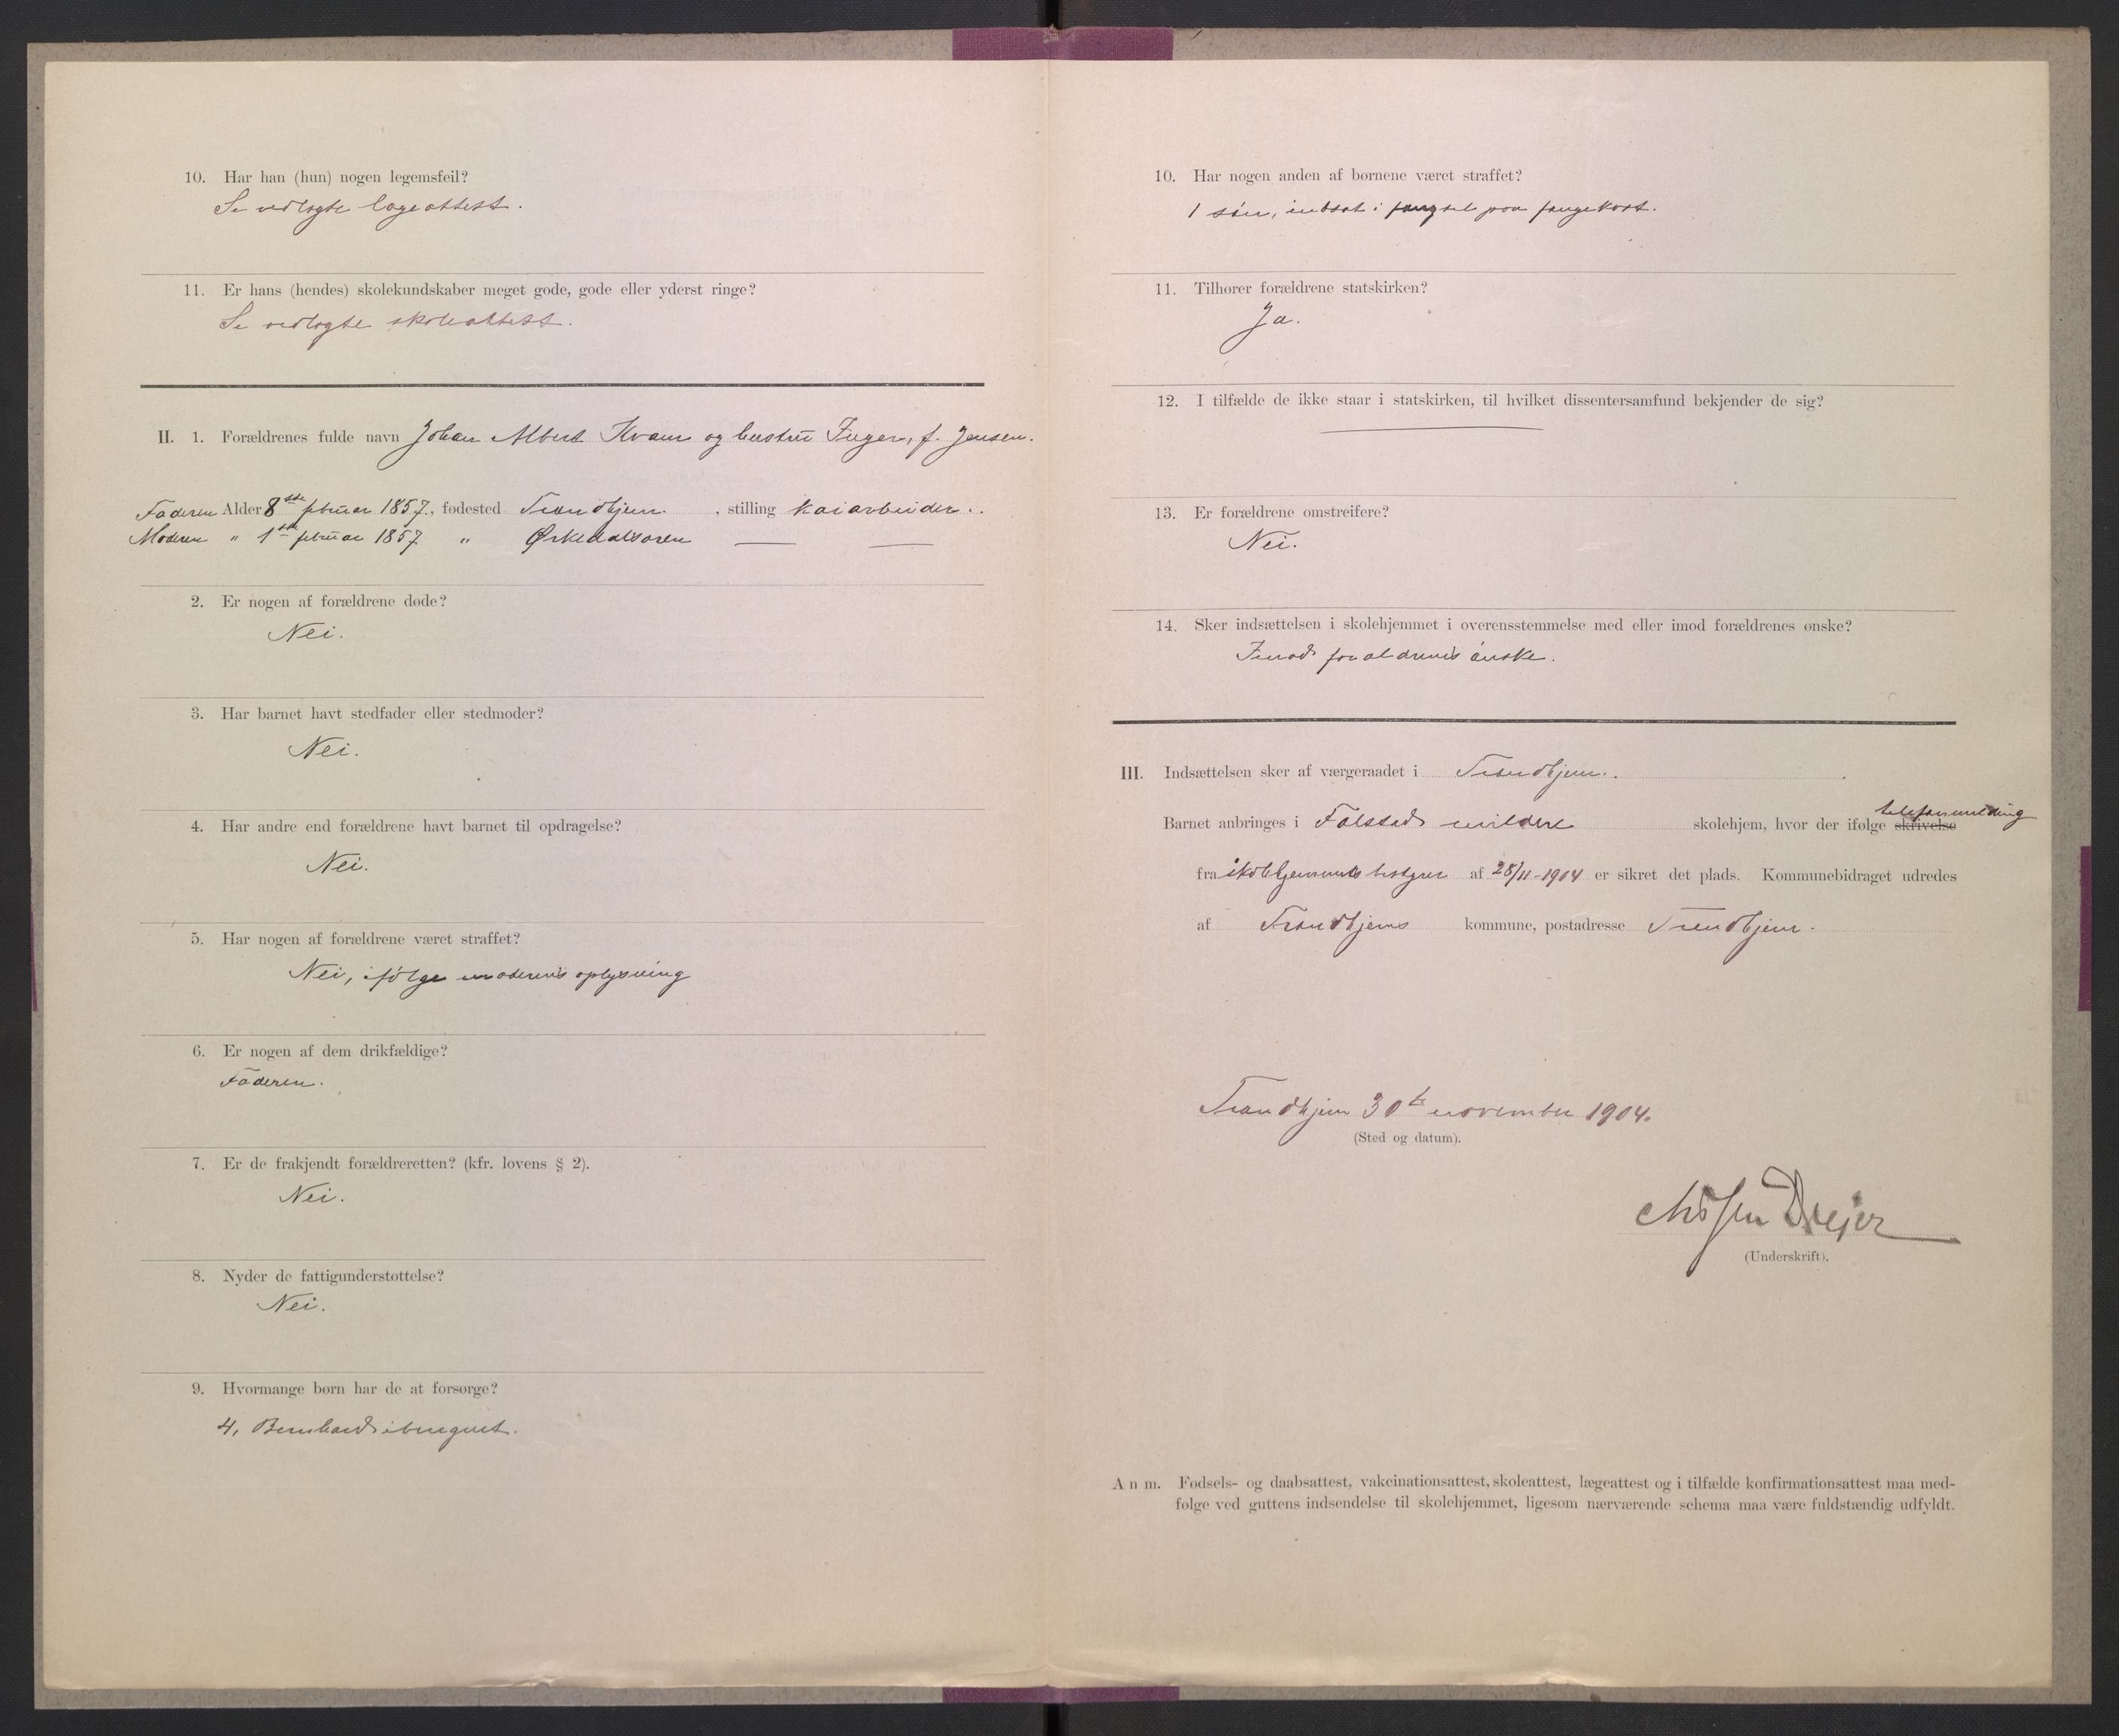 10. Har han (hun) nogen legemsfeil?
Se vedlagte lægeattest.
11. Er hans (hendes) skolekundskaber meget gode, gode eller yderst ringe?
Se vedlagte skoleattest.
II. 1. Forældrenes fulde navn Johan Albert Kvam og hustru Inger, f. Jensen.
Faderen Alder 8de februar 1857, fødested Trondhjem, stilling kaiarbeider.
Moderen " 1ste februar 1857 " Ørkedalsøren — —
2. Er nogen af forældrene døde?
Nei.
3. Har barnet havt stedfader eller stedmoder?
Nei.
4. Har andre end forældrene havt barnet til opdragelse?
Nei.
5. Har nogen af forældrene været straffet?
Nei, ifølge moderens oplysning
6. Er nogen af dem drikfældige?
Faderen.
7. Er de frakjendt forældreretten? (kfr. lovens § 2).
Nei.
8. Nyder de fattigunderstøttelse?
Nei.
9. Hvormange børn har de at forsørge?
4, Bernhard iberegnet.
10. Har nogen anden af børnene været straffet?
1 søn, indsat i fængsel paa fangekost.
11. Tilhører forældrene statskirken?
Ja.
12. I tilfælde de ikke staar i statskirken, til hvilket dissentersamfund bekjender de sig?
13. Er forældrene omstreifere?
Nei.
14. Sker indsættelsen i skolehjemmet i overensstemmelse med eller imod forældrenes ønske?
Imod forældrenes ønske.
III. Indsættelsen sker af værgeraadet i Trondhjem.
telefonmelding
Barnet anbringes i Falstad mildere skolehjem, hvor der ifølge skrivelse
fra skolehjemmets bestyrer af 28/11-1904 er sikret det plads. Kommunebidraget udredes
af Trondhjems kommune, postadresse Trondhjem.
Trondhjem 30te november 1904.
(Sted og datum).
Drejer
(Underskrift).
Anm. Fødsels- og daabsattest, vakcinationsattest, skoleattest, lægeattest og i tilfælde konfirmationsattest maa med-
følge ved guttens indsendelse til skolehjemmet, ligesom nærværende schema maa være fuldstændig udfyldt.